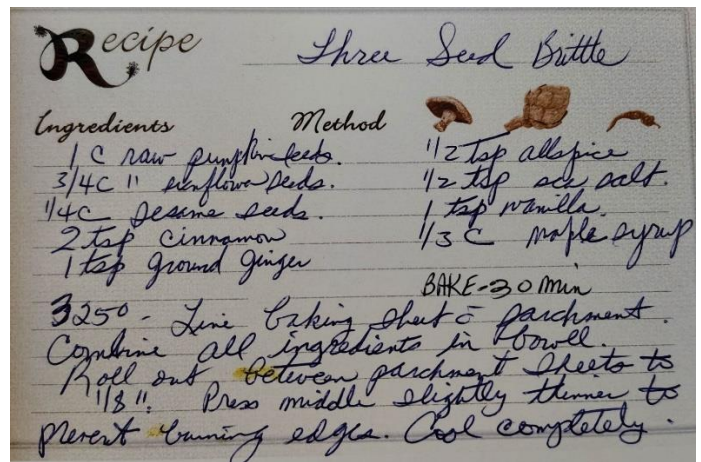 Recipe
Three Seed Brittle
Ingredients
Method
1 C raw pumpkin seeds.
3/4C " sunflower seeds.
1/4C sesame seeds.
2 tsp cinnamon
1 tsp ground ginger
1/2 tsp allspice
1/2 tsp sea salt.
1 tsp vanilla.
1/3 C maple syrup
BAKE-30 min
325° - Line baking sheet c̄ parchment.
Combine all ingredients in bowl.
Roll out between parchment sheets to
1/8". Press middle slightly thinner to
prevent burning edges. Cool completely.